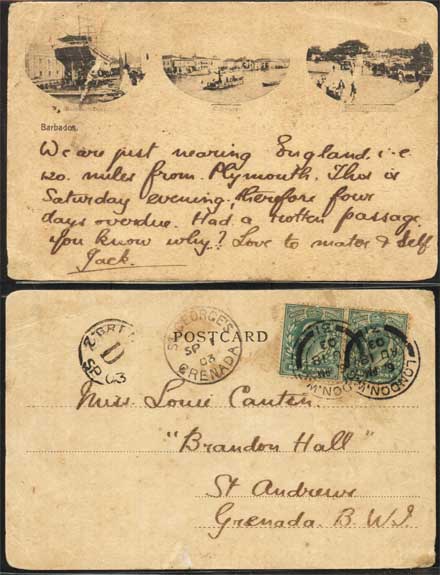 Barbados.
We are just nearing England. i.e
120. miles from. Plymouth. This is
Saturday evening. therefore four
days overdue. Had a rotten passage
you know why? Love to mater & self
Jack.
POSTCARD
ST. GEORGE'S
SP
03
GRENADA
D
SP 03
LONDON.W
AU
03
Miss Louie Canten.
"Brandon Hall"
St Andrews
Grenada. B.W.I.